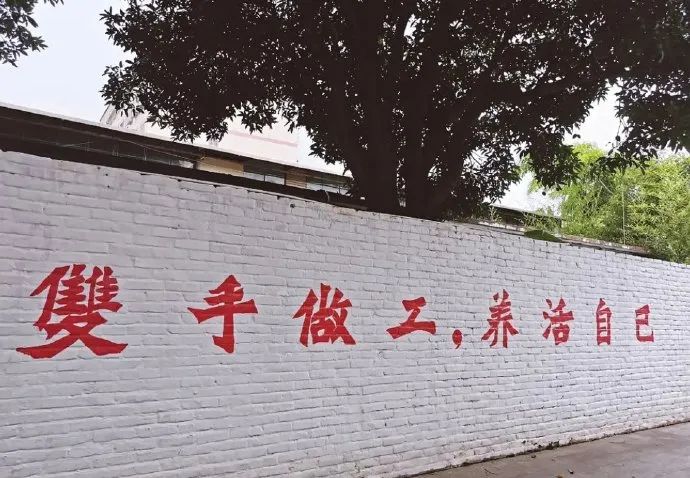 雙手做工,养活自己